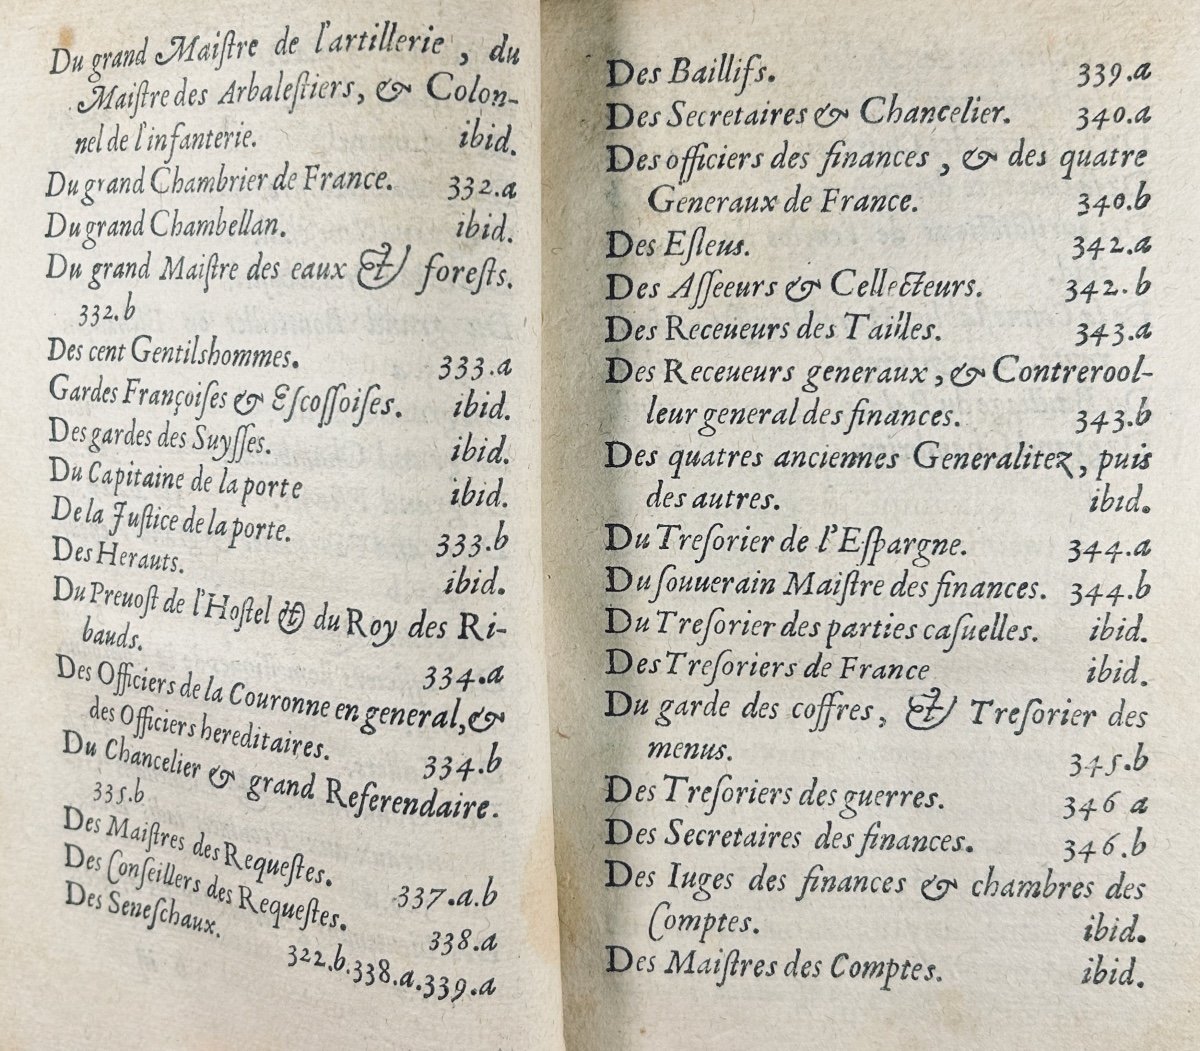 Du grand Maiſtre de l'artillerie, du
Maiſtre des Arbaleſtiers, & Colon-
nel de l'infanterie. ibid.
Du grand Chambrier de France. 332.a
Du grand Chambellan. ibid.
Du grand Maiſtre des eaux & foreſts.
332.b
Des cent Gentilshommes. 333.a
Gardes Françoiſes & Eſcoſſoiſes. ibid.
Des gardes des Suyſſes. ibid.
Du Capitaine de la porte ibid.
De la Juſtice de la porte. 333.b
Des Herauts. ibid.
Du Preuoſt de l'Hoſtel & du Roy des Ri-
bauds. 334.a
Des Officiers de la Couronne en general, &
des Officiers hereditaires. 334.b
Du Chancelier & grand Referendaire.
335.b
Des Maiſtres des Requeſtes. 337.a.b
Des Conſeillers des Requeſtes. 338.a
Des Seneſchaux. 322.b.338.a.339.a
Des Baillifs. 339.a
Des Secretaires & Chancelier. 340.a
Des officiers des finances, & des quatre
Generaux de France. 340.b
Des Eſleus. 342.a
Des Aſſeeurs & Cellecteurs. 342.b
Des Receueurs des Tailles. 343.a
Des Receueurs generaux, & Contrerool-
leur general des finances. 343.b
Des quatres anciennes Generalitez, puis
des autres. ibid.
Du Treſorier de l'Eſpargne. 344.a
Du ſouuerain Maiſtre des finances. 344.b
Du Treſorier des parties caſuelles. ibid.
Des Treſoriers de France ibid.
Du garde des coffres, & Treſorier des
menus. 345.b
Des Treſoriers des guerres. 346 a
Des Secretaires des finances. 346.b
Des Iuges des finances & chambres des
Comptes. ibid.
Des Maiſtres des Comptes. ibid.